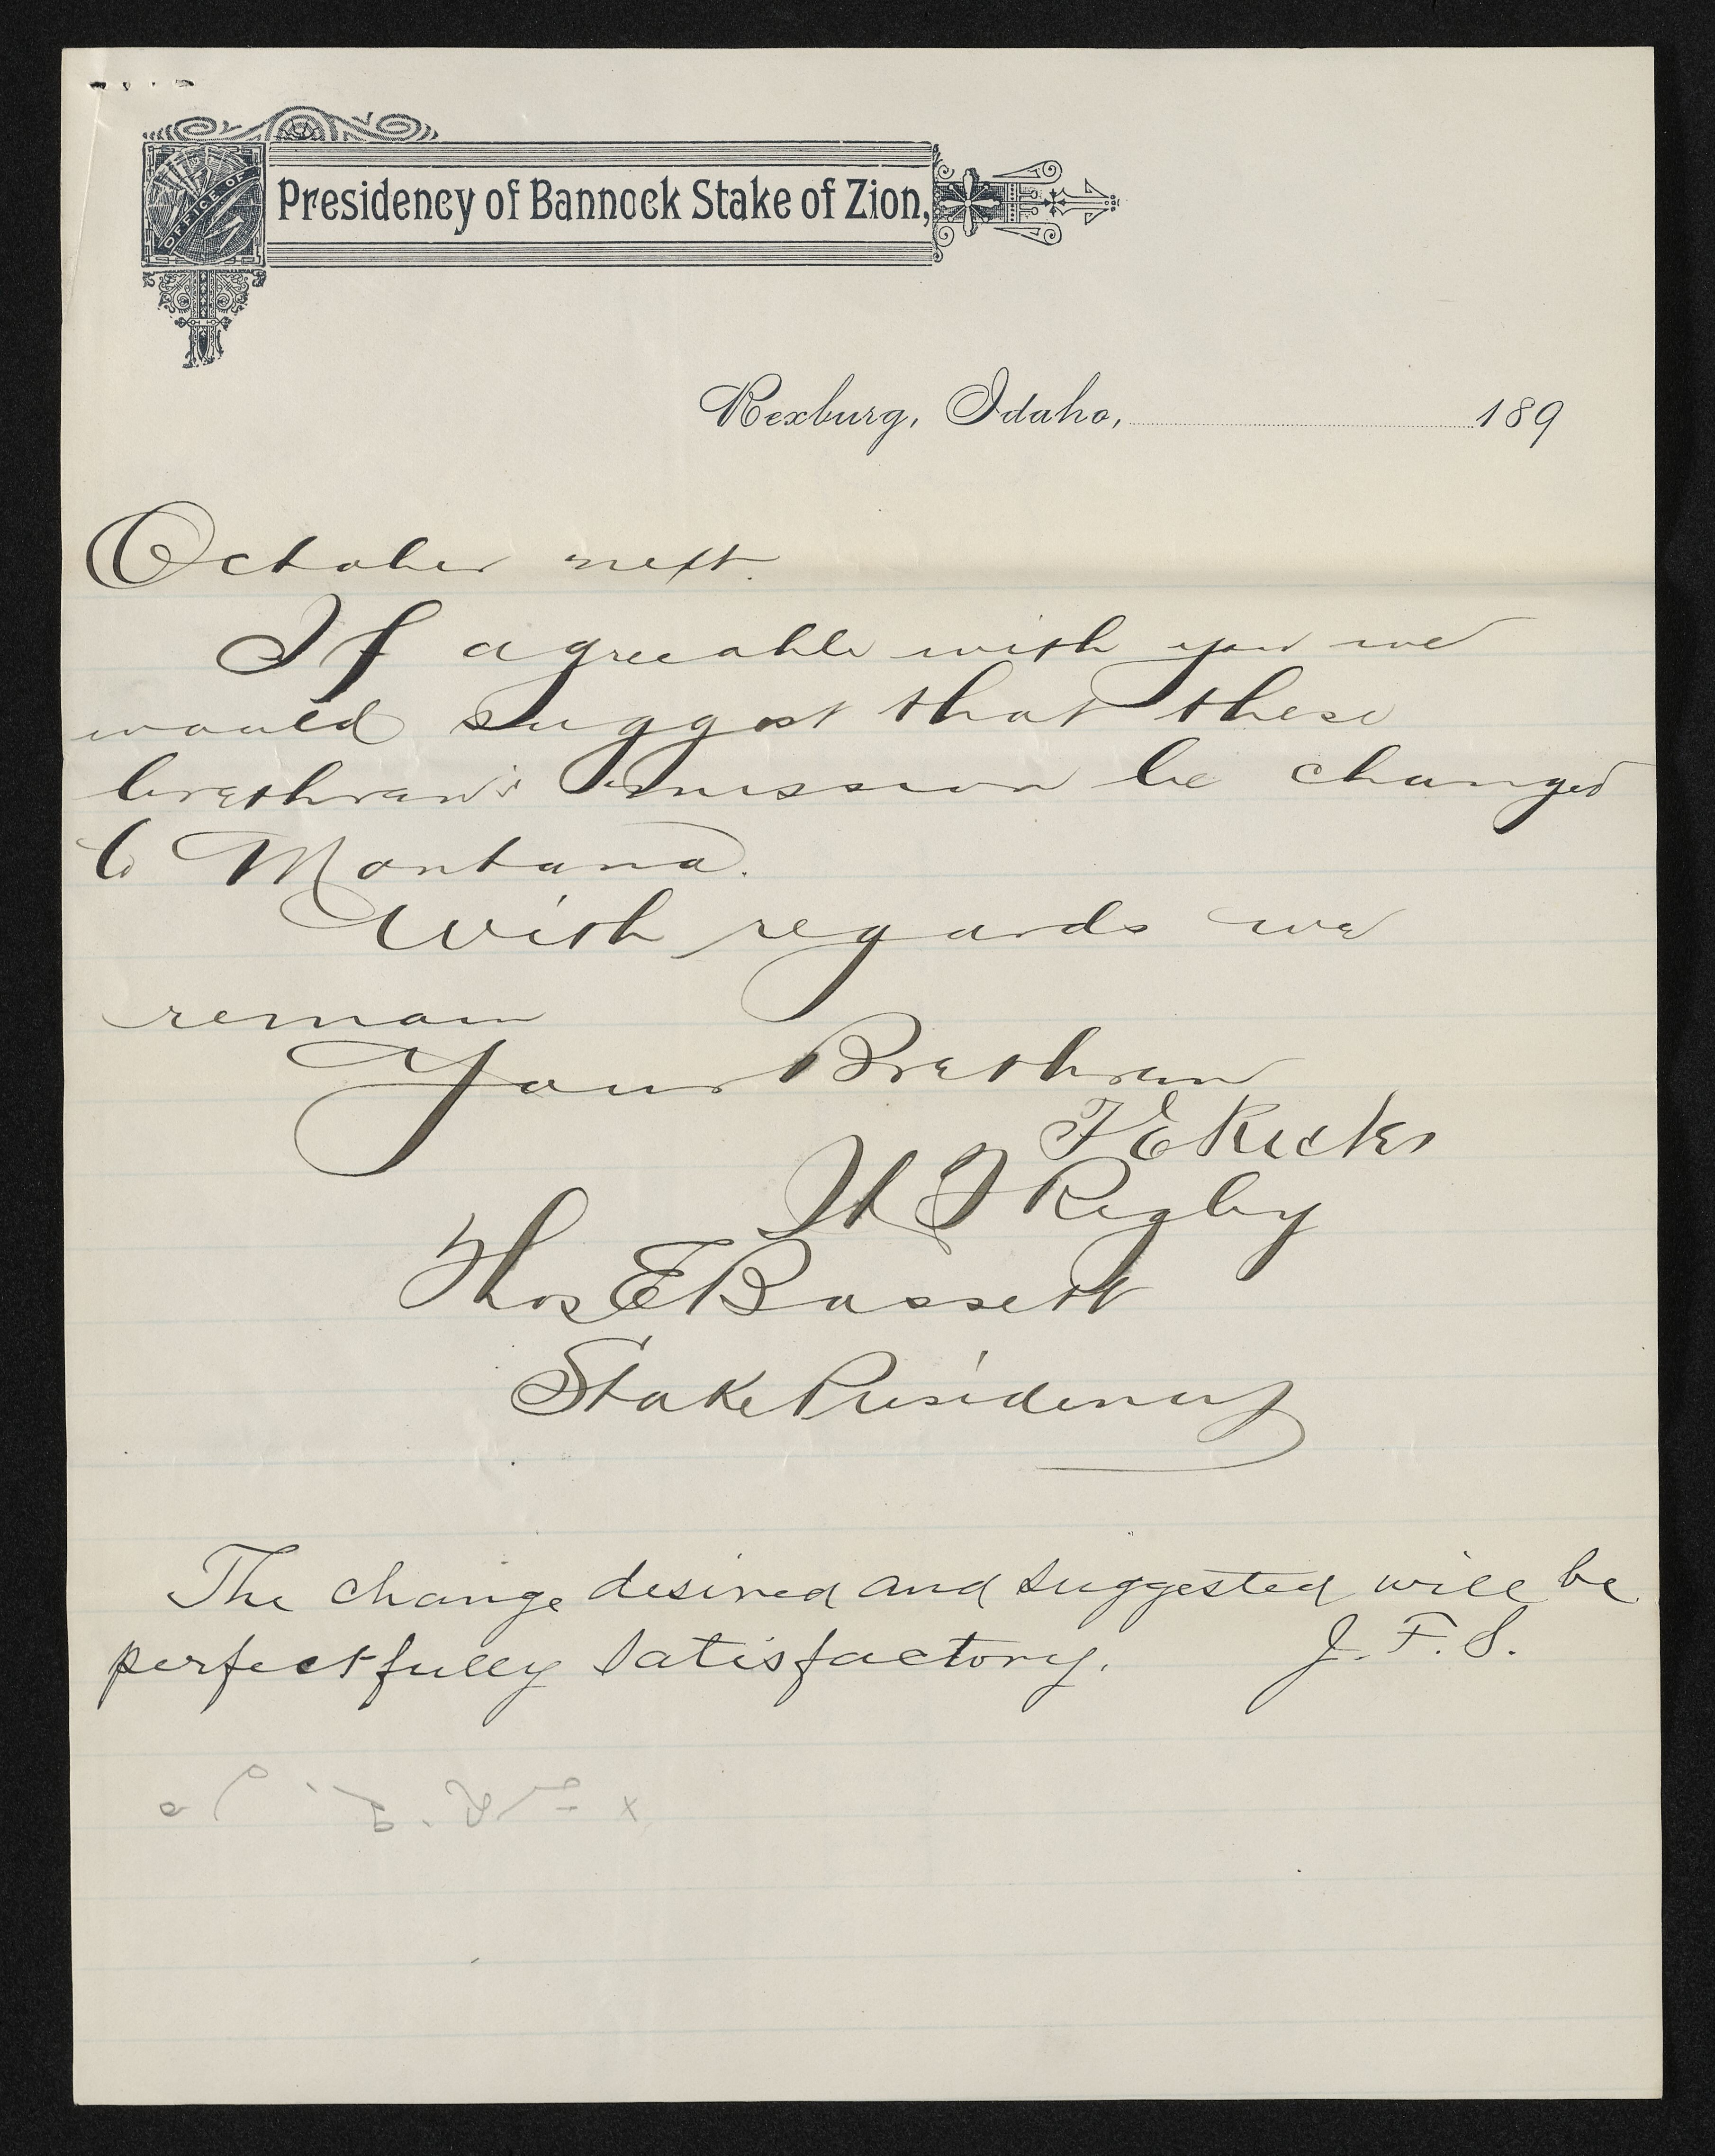 OFFICE OF
Presidency of Bannock Stake of Zion,
Rexburg, Idaho, 189
October next.
If agreeable with you we
would suggest that these
brethran's mission be changed
to Montana.
With regards we
remain
Your Brethran
T E Ricks
W F Rigby
Thos E Bassett
Stake Presidency
The change desired and suggested will be
perfectfully satisfactory. J. F. S.